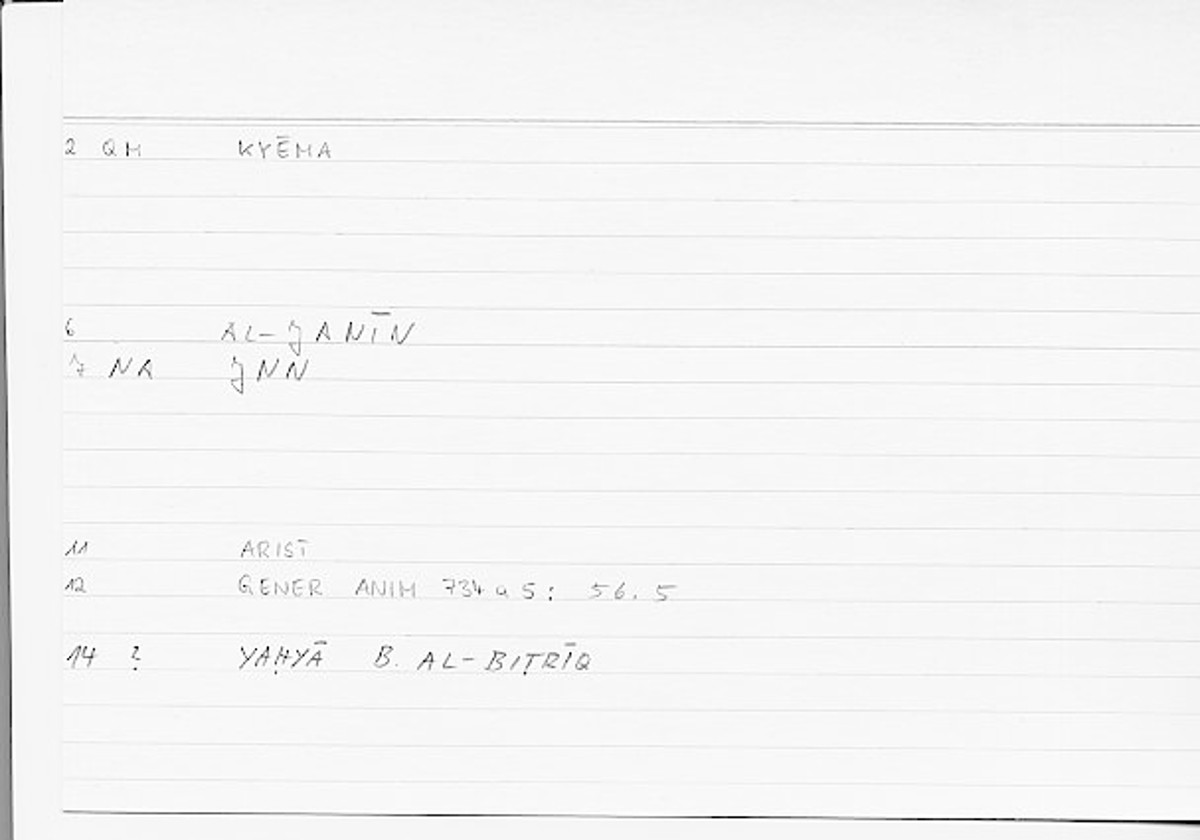 2 QM KYĒMA
6 AL-JANĪN
7 NA JNN
11 ARIST
12 GENER ANIM 734 a 5: 56.5
14 ? YAḤYĀ B. AL-BIṬRĪQ